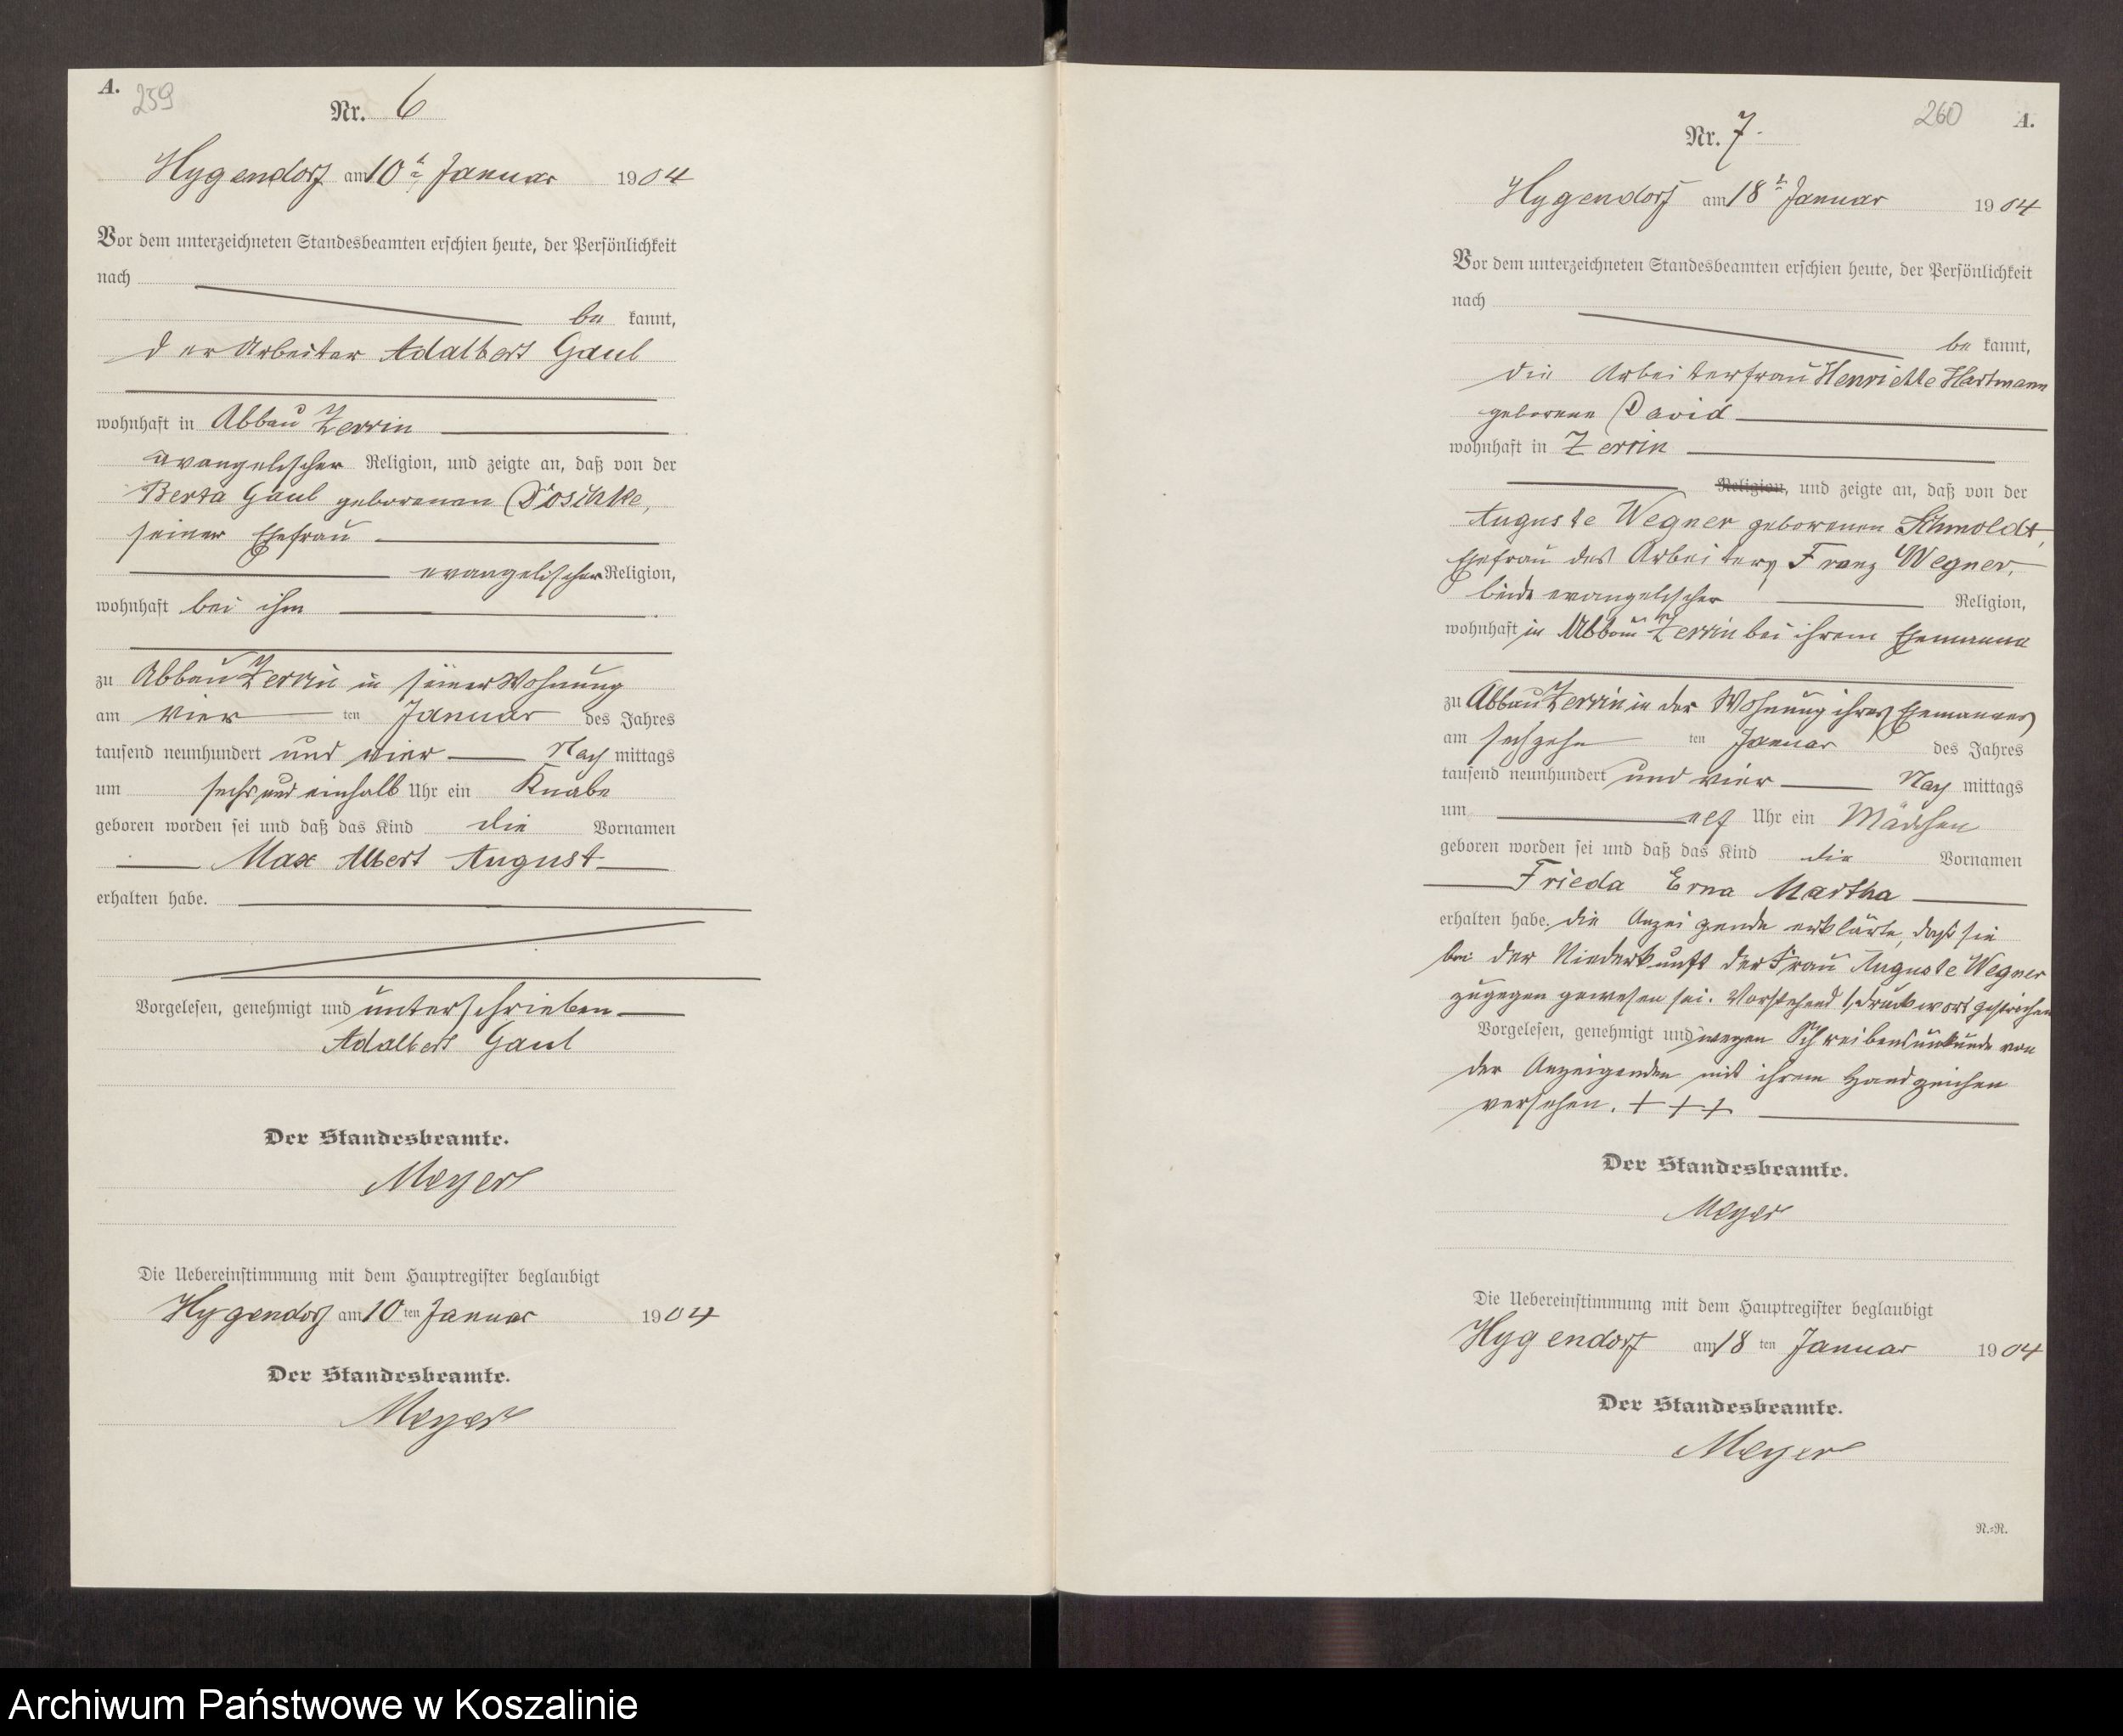 A.
259
Nr. 6
Hygendorf am 10t Januar 1904
Vor dem unterzeichneten Standesbeamten erschien heute, der Persönlichkeit
nach
be kannt,
der Arbeiter Adalbert Gaul
wohnhaft in Abbau Zerrin
evangelischer Religion, und zeigte an, daß von der
Berta Gaul geborenen
seiner Ehefrau
evangelischer Religion,
wohnhaft bei ihm
zu Abbau Zerrin in seiner Wohnung
am vier ten Januar des Jahres
tausend neunhundert und vier Nach mittags
um sechs und einhalb Uhr ein Knabe
geboren worden sei und daß das Kind die Vornamen
Max Albert August
erhalten habe.
Vorgelesen, genehmigt und unterschrieben
Adalbert Gaul
Der Standesbeamte.
Meyer
Die Uebereinstimmung mit dem Hauptregister beglaubigt
Hygendorf am 10 ten Januar 1904
Der Standesbeamte.
Meyer
260
A.
Nr. 7.
Hygendorf am 18t Januar 1904
Vor dem unterzeichneten Standesbeamten erschien heute, der Persönlichkeit
nach
be kannt,
die Arbeiterfrau Henriette Hartmann
geborene David
wohnhaft in Zerrin
Religion, und zeigte an, daß von der
Auguste Wegner geborenen Schmoldt,
Ehefrau des Arbeiters Franz Wegner,
beide evangelischer Religion,
wohnhaft in Abbau Zerrin bei ihrem Ehemanne
zu Abbau Zerrin in der Wohnung ihres Ehemannes
am sechzehn ten Januar des Jahres
tausend neunhundert und vier Nach mittags
um elf Uhr ein Mädchen
geboren worden sei und daß das Kind die Vornamen
Frieda Erna Martha
erhalten habe. Die Anzeigende erklärte, daß sie
bei der Niederkunft der Frau Auguste Wegner
zugegen gewesen sei. Vorstehend 1 Druckwort gestrichen
Vorgelesen, genehmigt und wegen Schreibensunkunde von
der Anzeigenden mit ihrem Handzeichen
versehen. + + +
Der Standesbeamte.
Meyer
Die Uebereinstimmung mit dem Hauptregister beglaubigt
Hygendorf am 18 ten Januar 1904
Der Standesbeamte.
Meyer
N.-N.
Archiwum Państwowe w Koszalinie